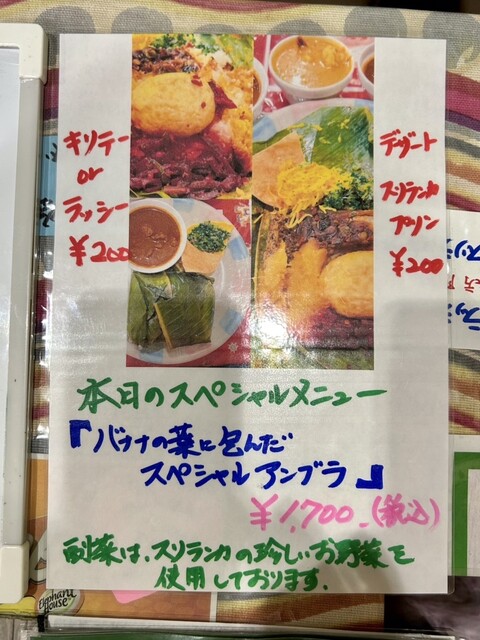 キリテー
or
ラッシー
¥200
デザート
スリランカ
プリン
¥200
本日のスペシャルメニュー
『バナナの葉に包んだ
スペシャルアンブラ』
¥1,700.(税込)
副菜は、スリランカの珍しいお野菜を
使用しております.
Elephant
House